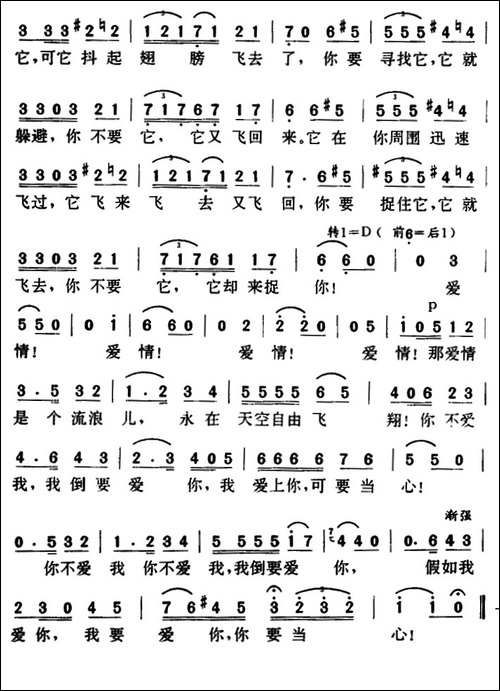 3 33 #2♮2 | 1217 1 21 | 70 6 #5 | 555 #4♮4 |
它,可它 抖 起 翅 膀 飞去 了, 你 要 寻找它,它 就
3303 21 | 71767 17 | 6 6#5 | 555 #4♮4 |
躲避, 你 不要 它, 它又 飞回 来。它 在 你周围 迅 速
3303 #2♮2 | 12171 21 | 7·6 #5 | #555 #4♮4 |
飞过, 它 飞来 飞 去 又飞 回, 你要 捉住它,它 就
转1=D( 前6=后1)
3303 21 | 71761 17 | 6 60 | 0 3 |
飞去, 你 不要 它, 它却 来捉 你! 爱
p
5 50 | 0 i | 6 60 | 0 2 | 2 20 | 05 | i 0512 |
情! 爱 情! 爱 情! 爱 情!那爱情
3·5 32 | 1·2 34 | 5555 65 | 406 23 |
是 个 流浪 儿, 永 在 天空自由 飞 翔!你 不爱
4·6 43 | 2·3 405 | 666 6 76 | 5 50 |
我, 我 倒 要 爱 你, 我 爱上你,可 要 当 心!
渐强
0·532 | 1·234 | 5555 i7 | 440 | 0·643 |
你不爱 我 你不爱 我,我倒要爱 你, 假如我
2 30 45 | 76 #45 | 3232 | i i0 ‖
爱你, 我 要 爱 你,你 要 当 心!